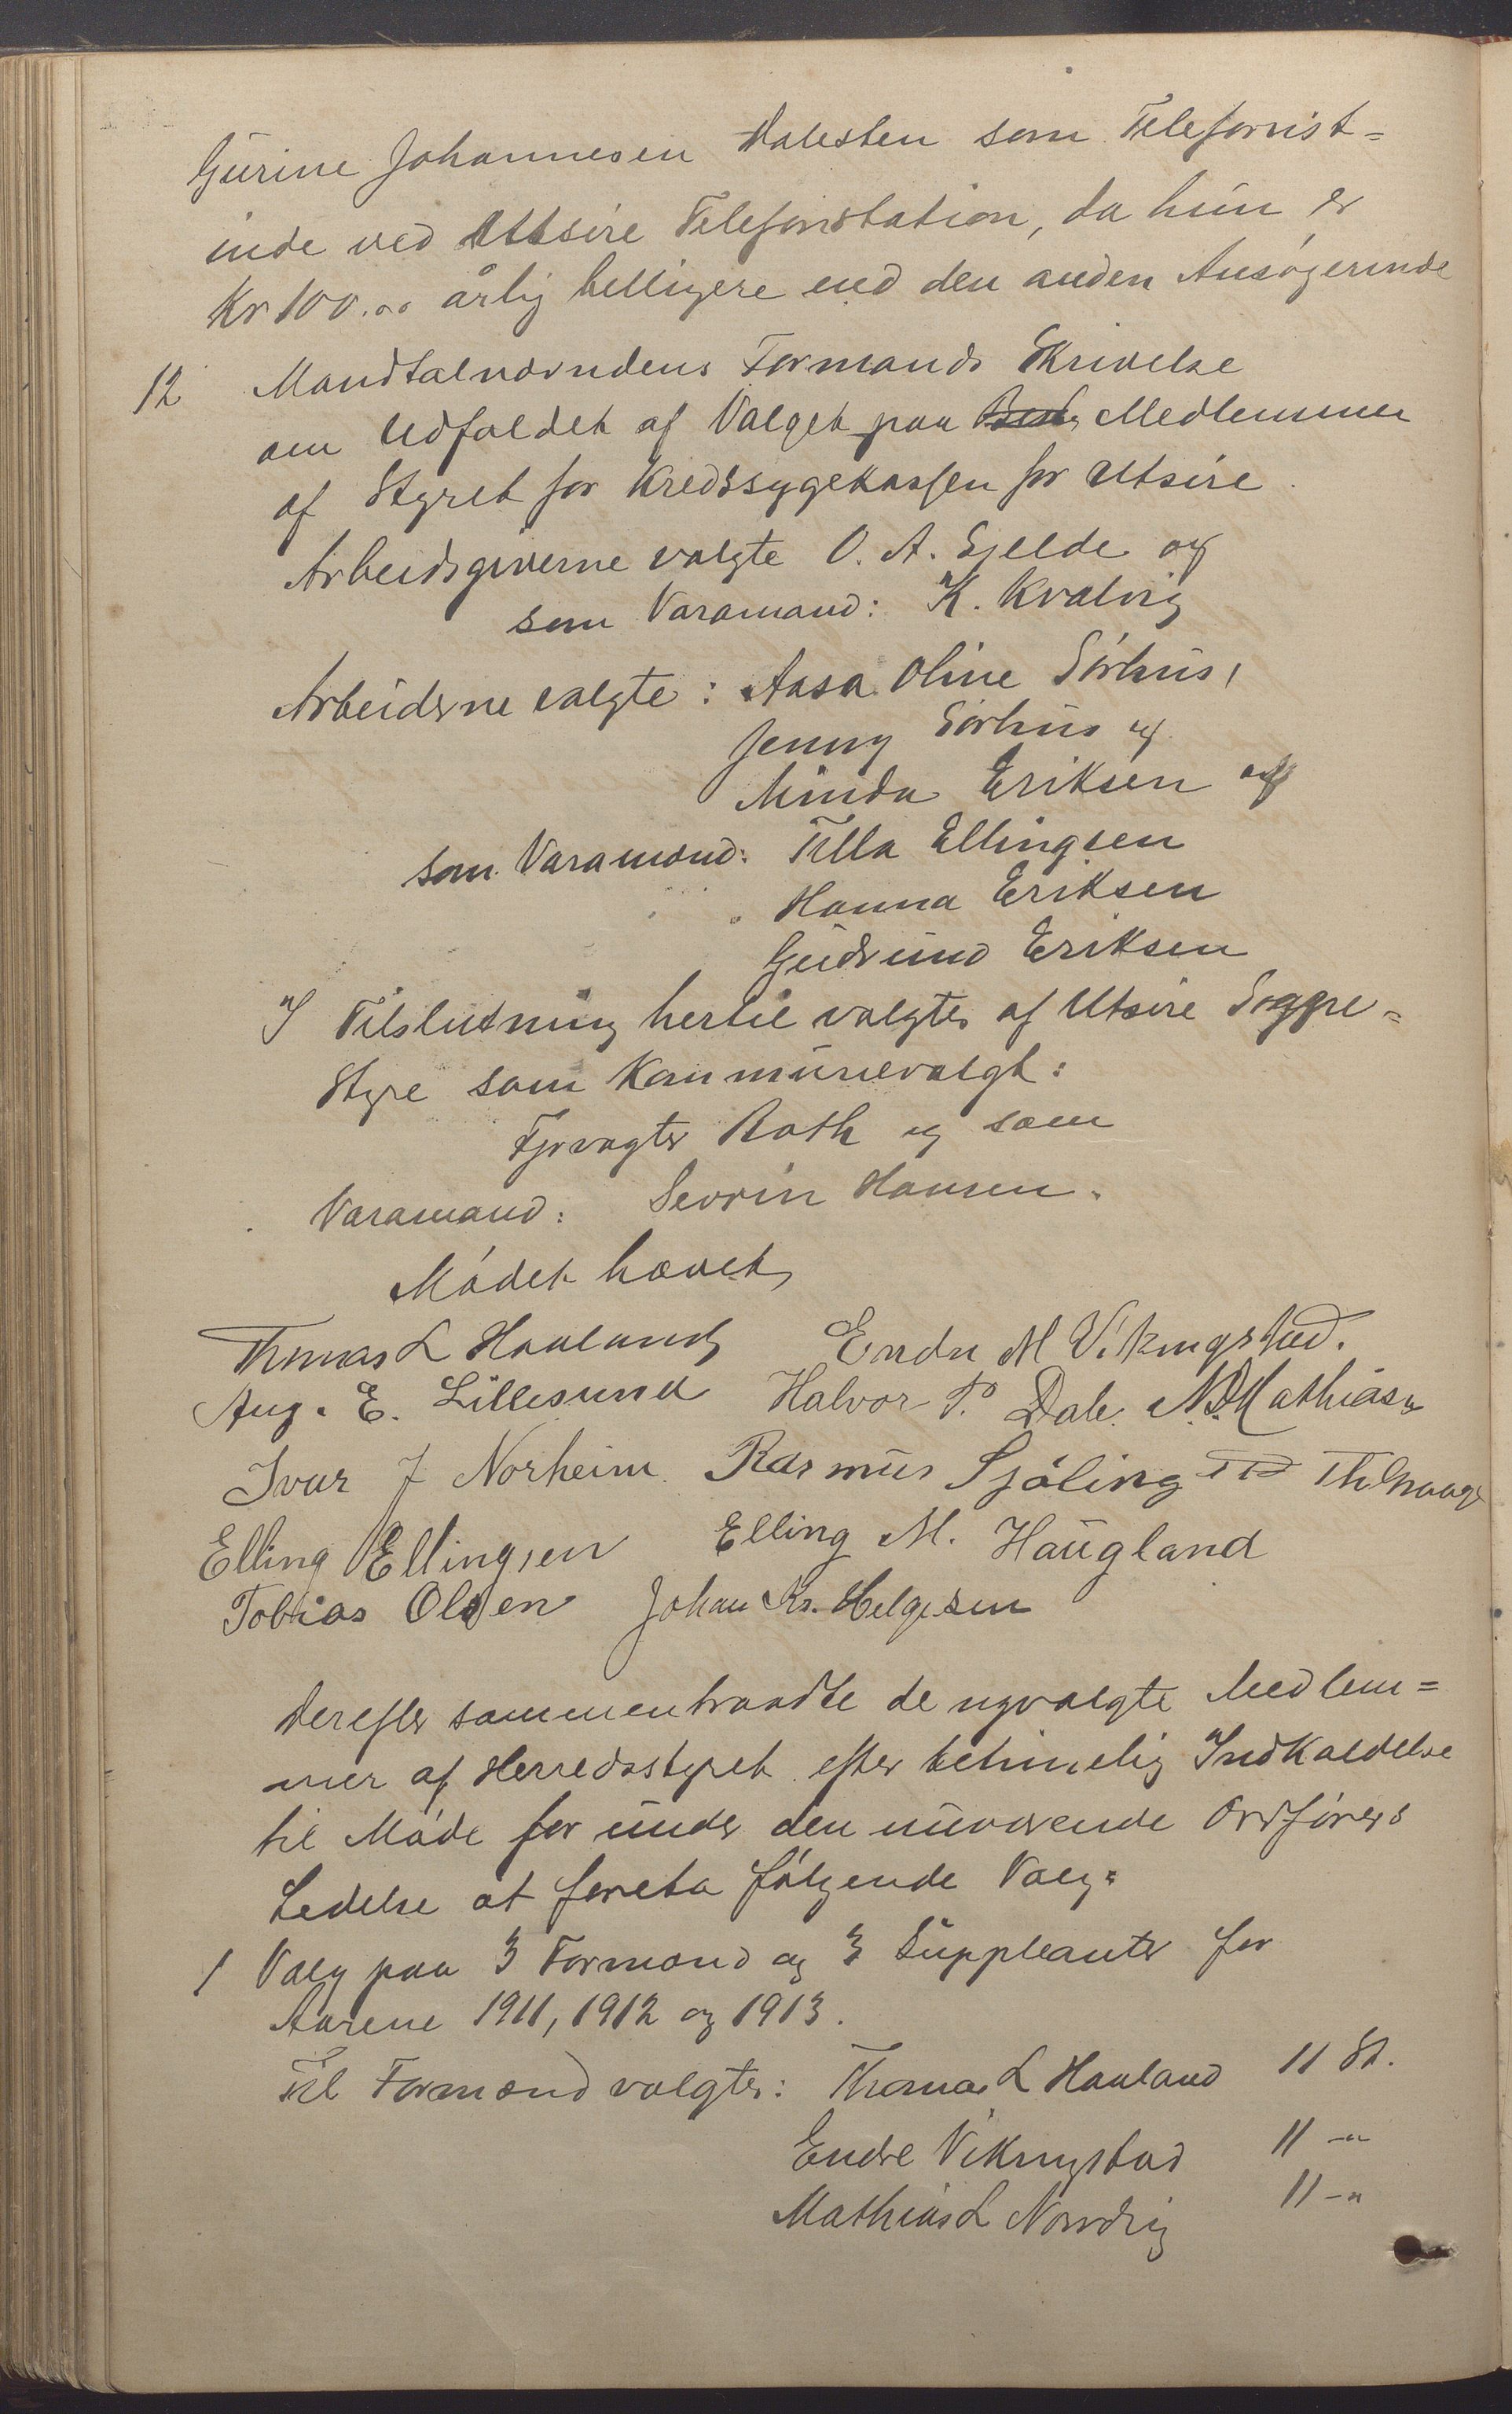 Gurine Johannesen Dalesten som Telefonist-
inde ved Utsire Telefonstation, da hun er
Kr 100.00 årlig belligere end den anden Ansøgerinde
12 Mandtalnævndens Formands Skrivelse
om Udfaldet af Valget paa Medlemmer
af Styret for Kredssygekassen for Utsire.
Arbeidsgiverne valgte O. A. Gjelde og
som Varamand: K. Kvalvig
Arbeiderne valgte: Aasa Oline Sørhus,
Jenny Sørhus og
Minda Eriksen og
som Varamænd: Tilla Ellingsen
Hanna Eriksen
Gudrund Eriksen
I Tilslutning hertil valgtes af Utsire Sogne-
styre som Kommunevalgt:
Fyrvagter Roth og som
Varamand: Sevrin Hansen.
Mødet hævet
Thomas L Haaland Endre M Vikingstad.
Aug. E. Lillesund Halvor P. Dale. N. Mathiasen
Ivar J Norheim. Rasmus Sjöling
Elling Ellingsen Elling M. Haugland
Tobias Olsen Johan Kr. Helgesen
Derefter sammentraadte de nyvalgte Medlem-
mer af Herredsstyret efter betimelig Indkaldelse
til Møde for under den nuværende Ordførers
Ledelse at foreta følgende Valg:
1 Valg paa 3 Formænd og 3 Suppleanter for
Aarene 1911, 1912 og 1913.
Til Formænd valgtes: Thomas L Haaland 11 St.
Endre Vikingstad 11 -"
Mathias L Nordvig 11 -"